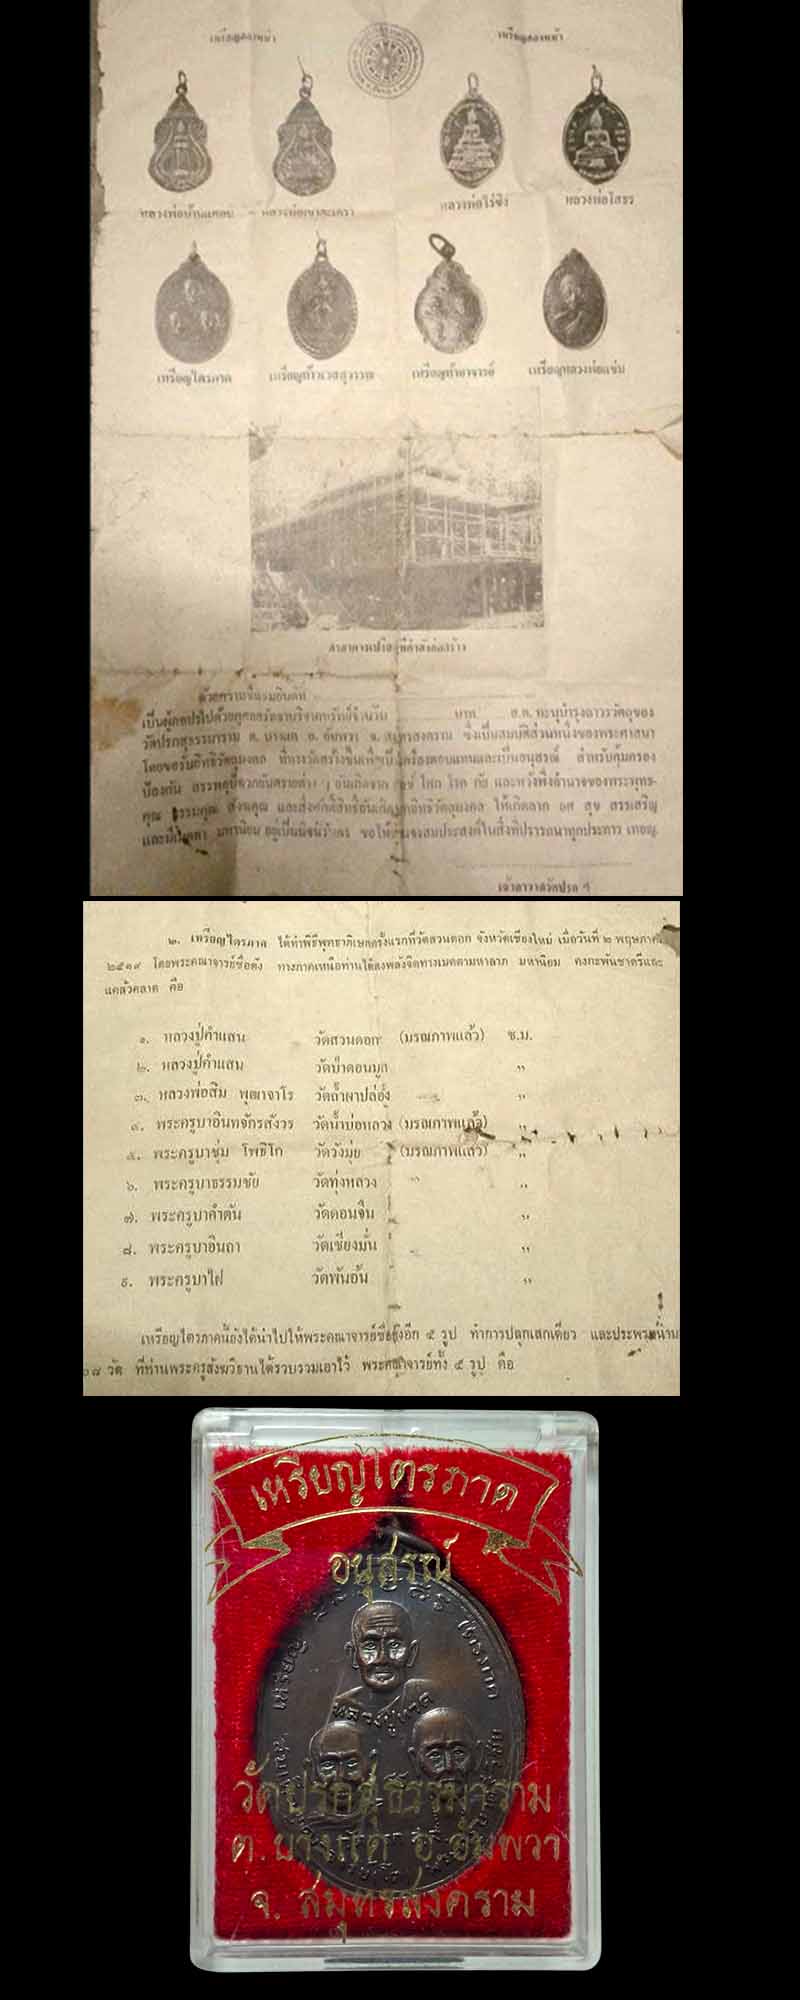 เหรียญสองหน้า
เหรียญสองหน้า
หลวงพ่อบ้านแหลม - หลวงพ่อเขาตะเครา
หลวงพ่อไร่ขิง
หลวงพ่อโสธร
เหรียญไตรภาค
เหรียญท้าวเวสสุวรรณ
เหรียญห้าอาจารย์
เหรียญหลวงพ่อแช่ม
ศาลาการเปรียญที่กำลังก่อสร้าง
ด้วยความ
เป็นผู้ บาท ส.ต. ทะนุบำรุงถาวรวัตถุของ
วัดปรกสุธรรมาราม ต. บางแค อ. อัมพวา จ. สมุทรสงคราม ซึ่งเป็นสมบัติส่วนหนึ่งของพระศาสนา
โดยขอรับอิทธิวัตถุมงคล ที่ทางวัดสร้างขึ้นเพื่อเป็นเครื่องตอบแทนและเป็นอนุสรณ์ สำหรับคุ้มครอง
ป้องกัน สรรพอุปัทวอันตรายต่าง ๆ อันเกิดจาก ทุกข์ โศก โรค ภัย และหวังพึ่งอำนาจของพระพุทธ-
คุณ ธรรมคุณ สังฆคุณ และสิ่งศักดิ์สิทธิ์อันเกิด อิทธิวัตถุมงคล ให้เกิดลาภ ยศ สุข สรรเสริญ
และมีเมตตา มหานิยม อยู่เป็นนิจนิรันดร ขอให้ จงสมประสงค์ในสิ่งที่ปรารถนาทุกประการ เทอญ.
เจ้าอาวาสวัดปรก ฯ
๒. เหรียญไตรภาค ได้ทำพิธีพุทธาภิเษกครั้งแรกที่วัดสวนดอก จังหวัดเชียงใหม่ เมื่อวันที่ ๒ พฤษภาคม
๒๕๑๙ โดยพระคณาจารย์ชื่อดัง ทางภาคเหนือท่านได้ลงพลังจิตทางเมตตามหาลาภ มหานิยม คงกะพันชาตรีและ
แคล้วคลาด คือ
๑. หลวงปู่คำแสน วัดสวนดอก (มรณภาพแล้ว) ช.ม.
๒. หลวงปู่คำแสน วัดป่าดอนมูก ,,
๓. หลวงพ่อสิม พุฒาจาโร วัดถ้ำผาปล่อง ,,
๔. พระครูบาอินทจักรสังวร วัดน้ำบ่อหลวง (มรณภาพแล้ว) ,,
๕. พระครูบาชุ่ม โพธิโก วัดวังมุ่ย (มรณภาพแล้ว) ,,
๖. พระครูบาธรรมชัย วัดทุ่งหลวง ,,
๗. พระครูบาคำตัน วัดดอนจืน ,,
๘. พระครูบาอินถา วัดเชียงมั่น ,,
๙. พระครูบาไฝ วัดพันอ้น ,,
เหรียญไตรภาคนี้ยังได้นำไปให้พระคณาจารย์ชื่อดังอีก ๕ รูป ทำการปลุกเสกเดี่ยว และประพรมน้ำมนต์
๑๐๘ วัด ที่ท่านพระครูสังฆวิธานได้รวบรวมเอาไว้ พระคณาจารย์ทั้ง ๕ รูป คือ
เหรียญไตรภาค
อนุสรณ์
เหรียญ ไตรภาค
หลวงปู่ทวด
วัดปรกสุธรรมาราม
ต.บางแค อ.อัมพวา
จ. สมุทรสงคราม